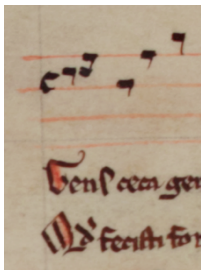 Gens ceca gen
Qd̕ fecisti ton